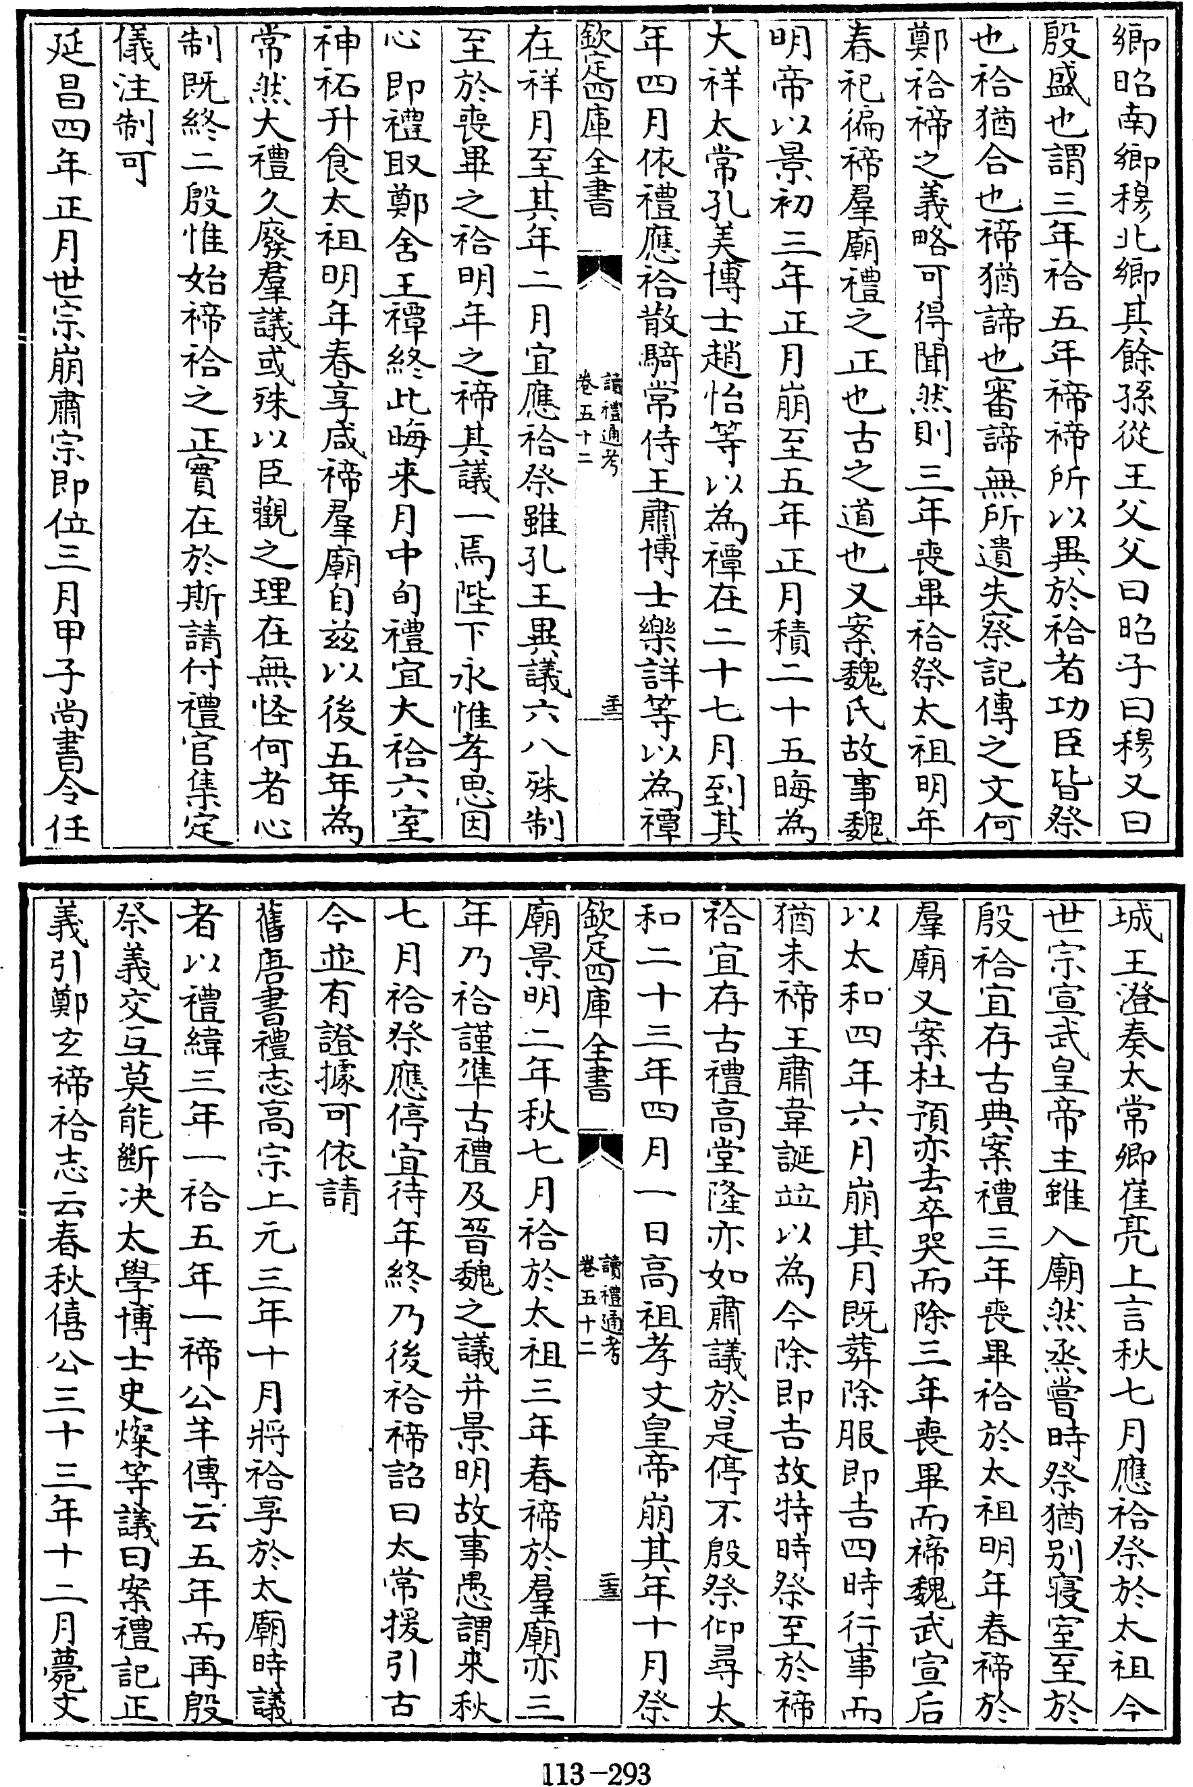 鄉昭南鄉穆北鄉其餘孫從王父父曰昭子曰穆又曰
殷盛也謂三年祫五年禘禘所以異於祫者功臣皆祭
也祫猶合也禘猶諦也審諦無所遺失察記傳之文何
鄭祫禘之義略可得聞然則三年喪畢祫祭太祖明年
春祀徧禘羣廟禮之正也古之道也又案魏氏故事魏
明帝以景初三年正月崩至五年正月積二十五晦為
大祥太常孔美博士趙怡等以為禫在二十七月到其
年四月依禮應祫散騎常侍王肅博士樂詳等以為禫
欽定四庫全書
讀禮通考
卷五十二
在祥月至其年二月宜應祫祭雖孔王異議六八殊制
至於喪畢之祫明年之禘其議一焉陛下永惟孝思因
心即禮取鄭舍王禫終此晦来月中旬禮宜大祫六室
神祏升食太祖明年春享咸禘羣廟自兹以後五年為
常然大禮久廢羣議或殊以臣觀之理在無怪何者心
制既終二殷惟始禘祫之正實在於斯請付禮官集定
儀注制可
延昌四年正月世宗崩肅宗即位三月甲子尚書令任
城王澄奏太常卿崔亮上言秋七月應祫祭於太祖今
世宗宣武皇帝主雖入廟然烝嘗時祭猶别寢室至於
殷祫宜存古典案禮三年喪畢祫於太祖明年春禘於
羣廟又案杜預亦去卒哭而除三年喪畢而禘魏武宣后
以太和四年六月崩其月既葬除服即吉四時行事而
猶未禘王肅韋誕竝以為今除即吉故特時祭至於禘
祫宜存古禮高堂隆亦如肅議於是停不殷祭仰尋太
和二十三年四月一日高祖孝文皇帝崩其年十月祭
欽定四庫全書
讀禮通考
卷五十二
廟景明二年秋七月祫於太祖三年春禘於羣廟亦三
年乃祫謹準古禮及晉魏之議并景明故事愚謂来秋
七月祫祭應停宜待年終乃後祫禘詔曰太常援引古
今並有證據可依請
舊唐書禮志高宗上元三年十月將祫享於太廟時議
者以禮緯三年一祫五年一禘公羊傳云五年而再殷
祭義交互莫能斷決太學博士史燦等議曰案禮記正
義引鄭玄禘祫志云春秋僖公三十三年十二月薨文
113-293